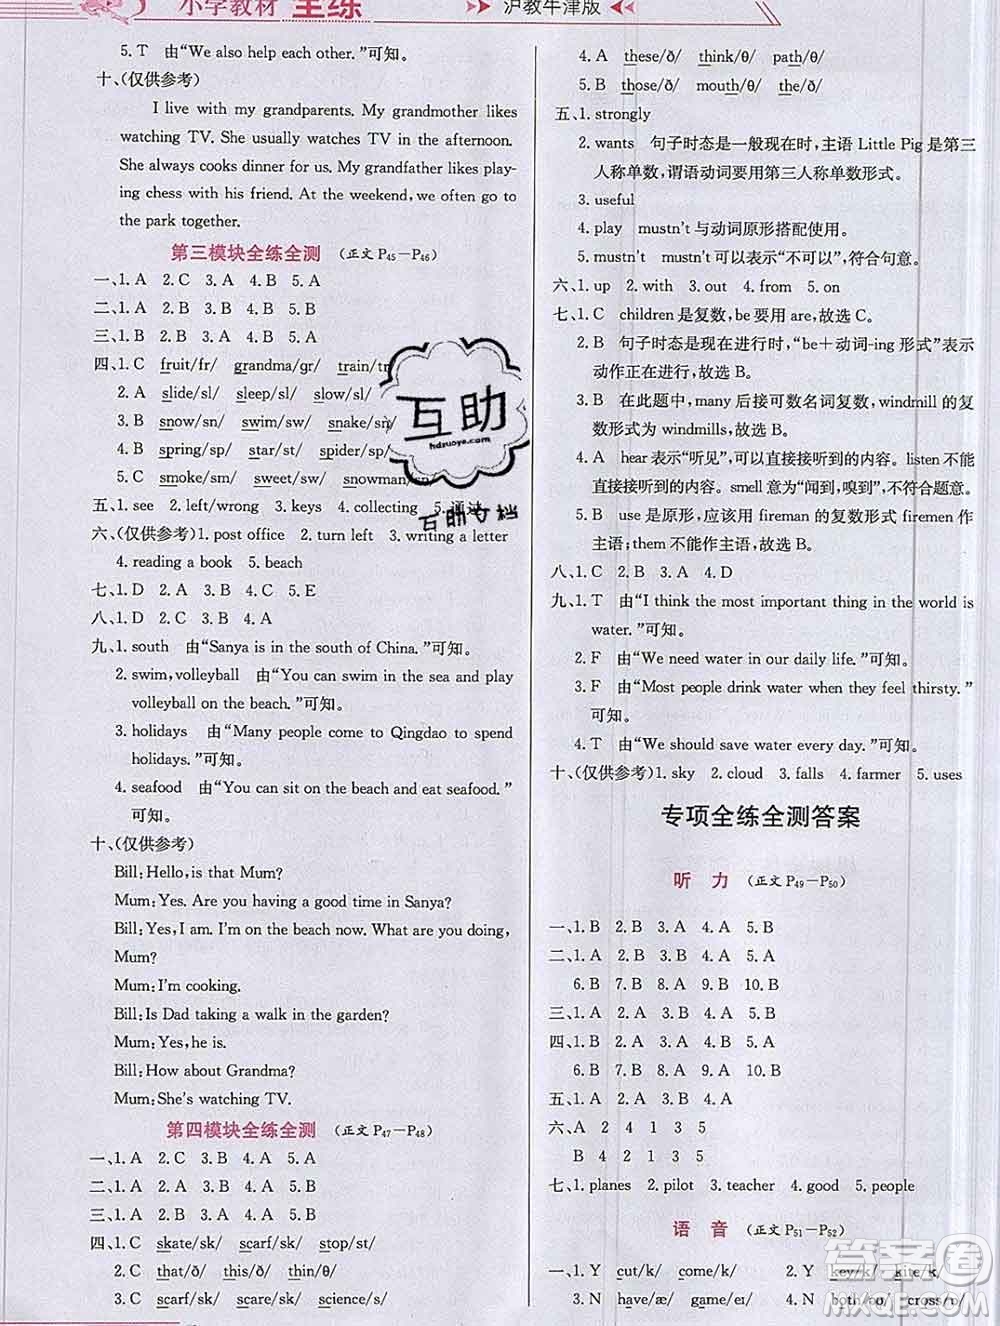 小学教材 全练
沪教牛津版
5. T 由“We also help each other.”可知。
十、(仅供参考)
I live with my grandparents. My grandmother likes
watching TV. She usually watches TV in the afternoon.
She always cooks dinner for us. My grandfather likes play-
ing chess with his friend. At the weekend, we often go to
the park together.
第三模块全练全测 (正文 P45—P46)
一、1. A 2. C 3. A 4. B 5. A
二、1. A 2. B 3. A 4. B 5. A
三、1. B 2. A 3. A 4. B 5. B
四、1. C fruit/fr/ grandma/gr/ train/tr
2. A slide/sl/ sleep/sl/ slow/sl/
3. B snow/sn/ swim/sw/ snake/sn/
4. B spring/sp/ start/st/ spider/sp/
5. C smoke/sm/ sweet/sw/ snowman/sn
五、1. see 2. left/wrong 3. keys 4. collecting 5. 通过
六、(仅供参考)1. post office 2. turn left 3. writing a letter
4. reading a book 5. beach
七、1. D 2. A 3. B 4. C 5. E
八、1. D 2. C 3. B 4. A
九、1. south 由“Sanya is in the south of China.”可知。
2. swim, volleyball 由“You can swim in the sea and play
volleyball on the beach.”可知。
3. holidays 由“Many people come to Qingdao to spend
holidays.”可知。
4. seafood 由“You can sit on the beach and eat seafood.”
可知。
十、(仅供参考)
Bill: Hello, is that Mum?
Mum: Yes. Are you having a good time in Sanya?
Bill: Yes, I am. I'm on the beach now. What are you doing,
Mum?
Mum: I'm cooking.
Bill: Is Dad taking a walk in the garden?
Mum: Yes, he is.
Bill: How about Grandma?
Mum: She's watching TV.
第四模块全练全测 (正文 P47—P48)
一、1. A 2. C 3. B 4. A 5. A
二、1. A 2. C 3. B 4. A 5. A
三、1. C 2. A 3. B 4. A 5. B
四、1. C skate/sk/ scarf/sk/ stop/st/
2. C that/ð/ this/ð/ thin/θ/
3. C scarf/sk/ scare/sk/ science/s/
4. A these/ð/ think/θ/ path/θ/
5. B those/ð/ mouth/θ/ the/ð/
五、1. strongly
2. wants 句子时态是一般现在时,主语 Little Pig 是第三
人称单数,谓语动词要用第三人称单数形式。
3. useful
4. play mustn't 与动词原形搭配使用。
5. mustn't mustn't 可以表示“不可以”,符合句意。
六、1. up 2. with 3. out 4. from 5. on
七、1. C children 是复数,be 要用 are,故选 C。
2. B 句子时态是现在进行时,“be+动词-ing 形式”表示
动作正在进行,故选 B。
3. B 在此题中,many 后接可数名词复数,windmill 的复
数形式为 windmills,故选 B。
4. A hear 表示“听见”,可以直接接听到的内容。listen 不能
直接接听到的内容。smell 意为“闻到,嗅到”,不符合题意。
5. B use 是原形,应该用 fireman 的复数形式 firemen 作
主语;them 不能作主语,故选 B。
八、1. C 2. B 3. A 4. D
九、1. T 由“I think the most important thing in the world is
water.”可知。
2. F 由“We need water in our daily life.”可知。
3. F 由“Most people drink water when they feel thirsty.”
可知。
4. T 由“We should save water every day.”可知。
十、(仅供参考)1. sky 2. cloud 3. falls 4. farmer 5. uses
专项全练全测答案
听 力 (正文 P49—P50)
一、1. B 2. B 3. A 4. A 5. B
二、1. A 2. B 3. A 4. A 5. B
6. B 7. B 8. A 9. B 10. B
三、1. A 2. A 3. B 4. A 5. A
四、1. B 2. A 3. A 4. B 5. A
6. B 7. B 8. B 9. A 10. B
五、1. A 2. A 3. A 4. B 5. A
六、A 2 4 1 3 5
B 4 2 1 3 5
七、1. planes 2. pilot 3. teacher 4. good 5. people
语 音 (正文 P51—P52)
一、1. Y cut/k/ come/k/ 2. Y key/k/ kite/k/
3. N have/æ/ game/eɪ/ 4. N both/əʊ/ cross/ɒ/
互助
hdzuoye.com
互助文档
答案圈